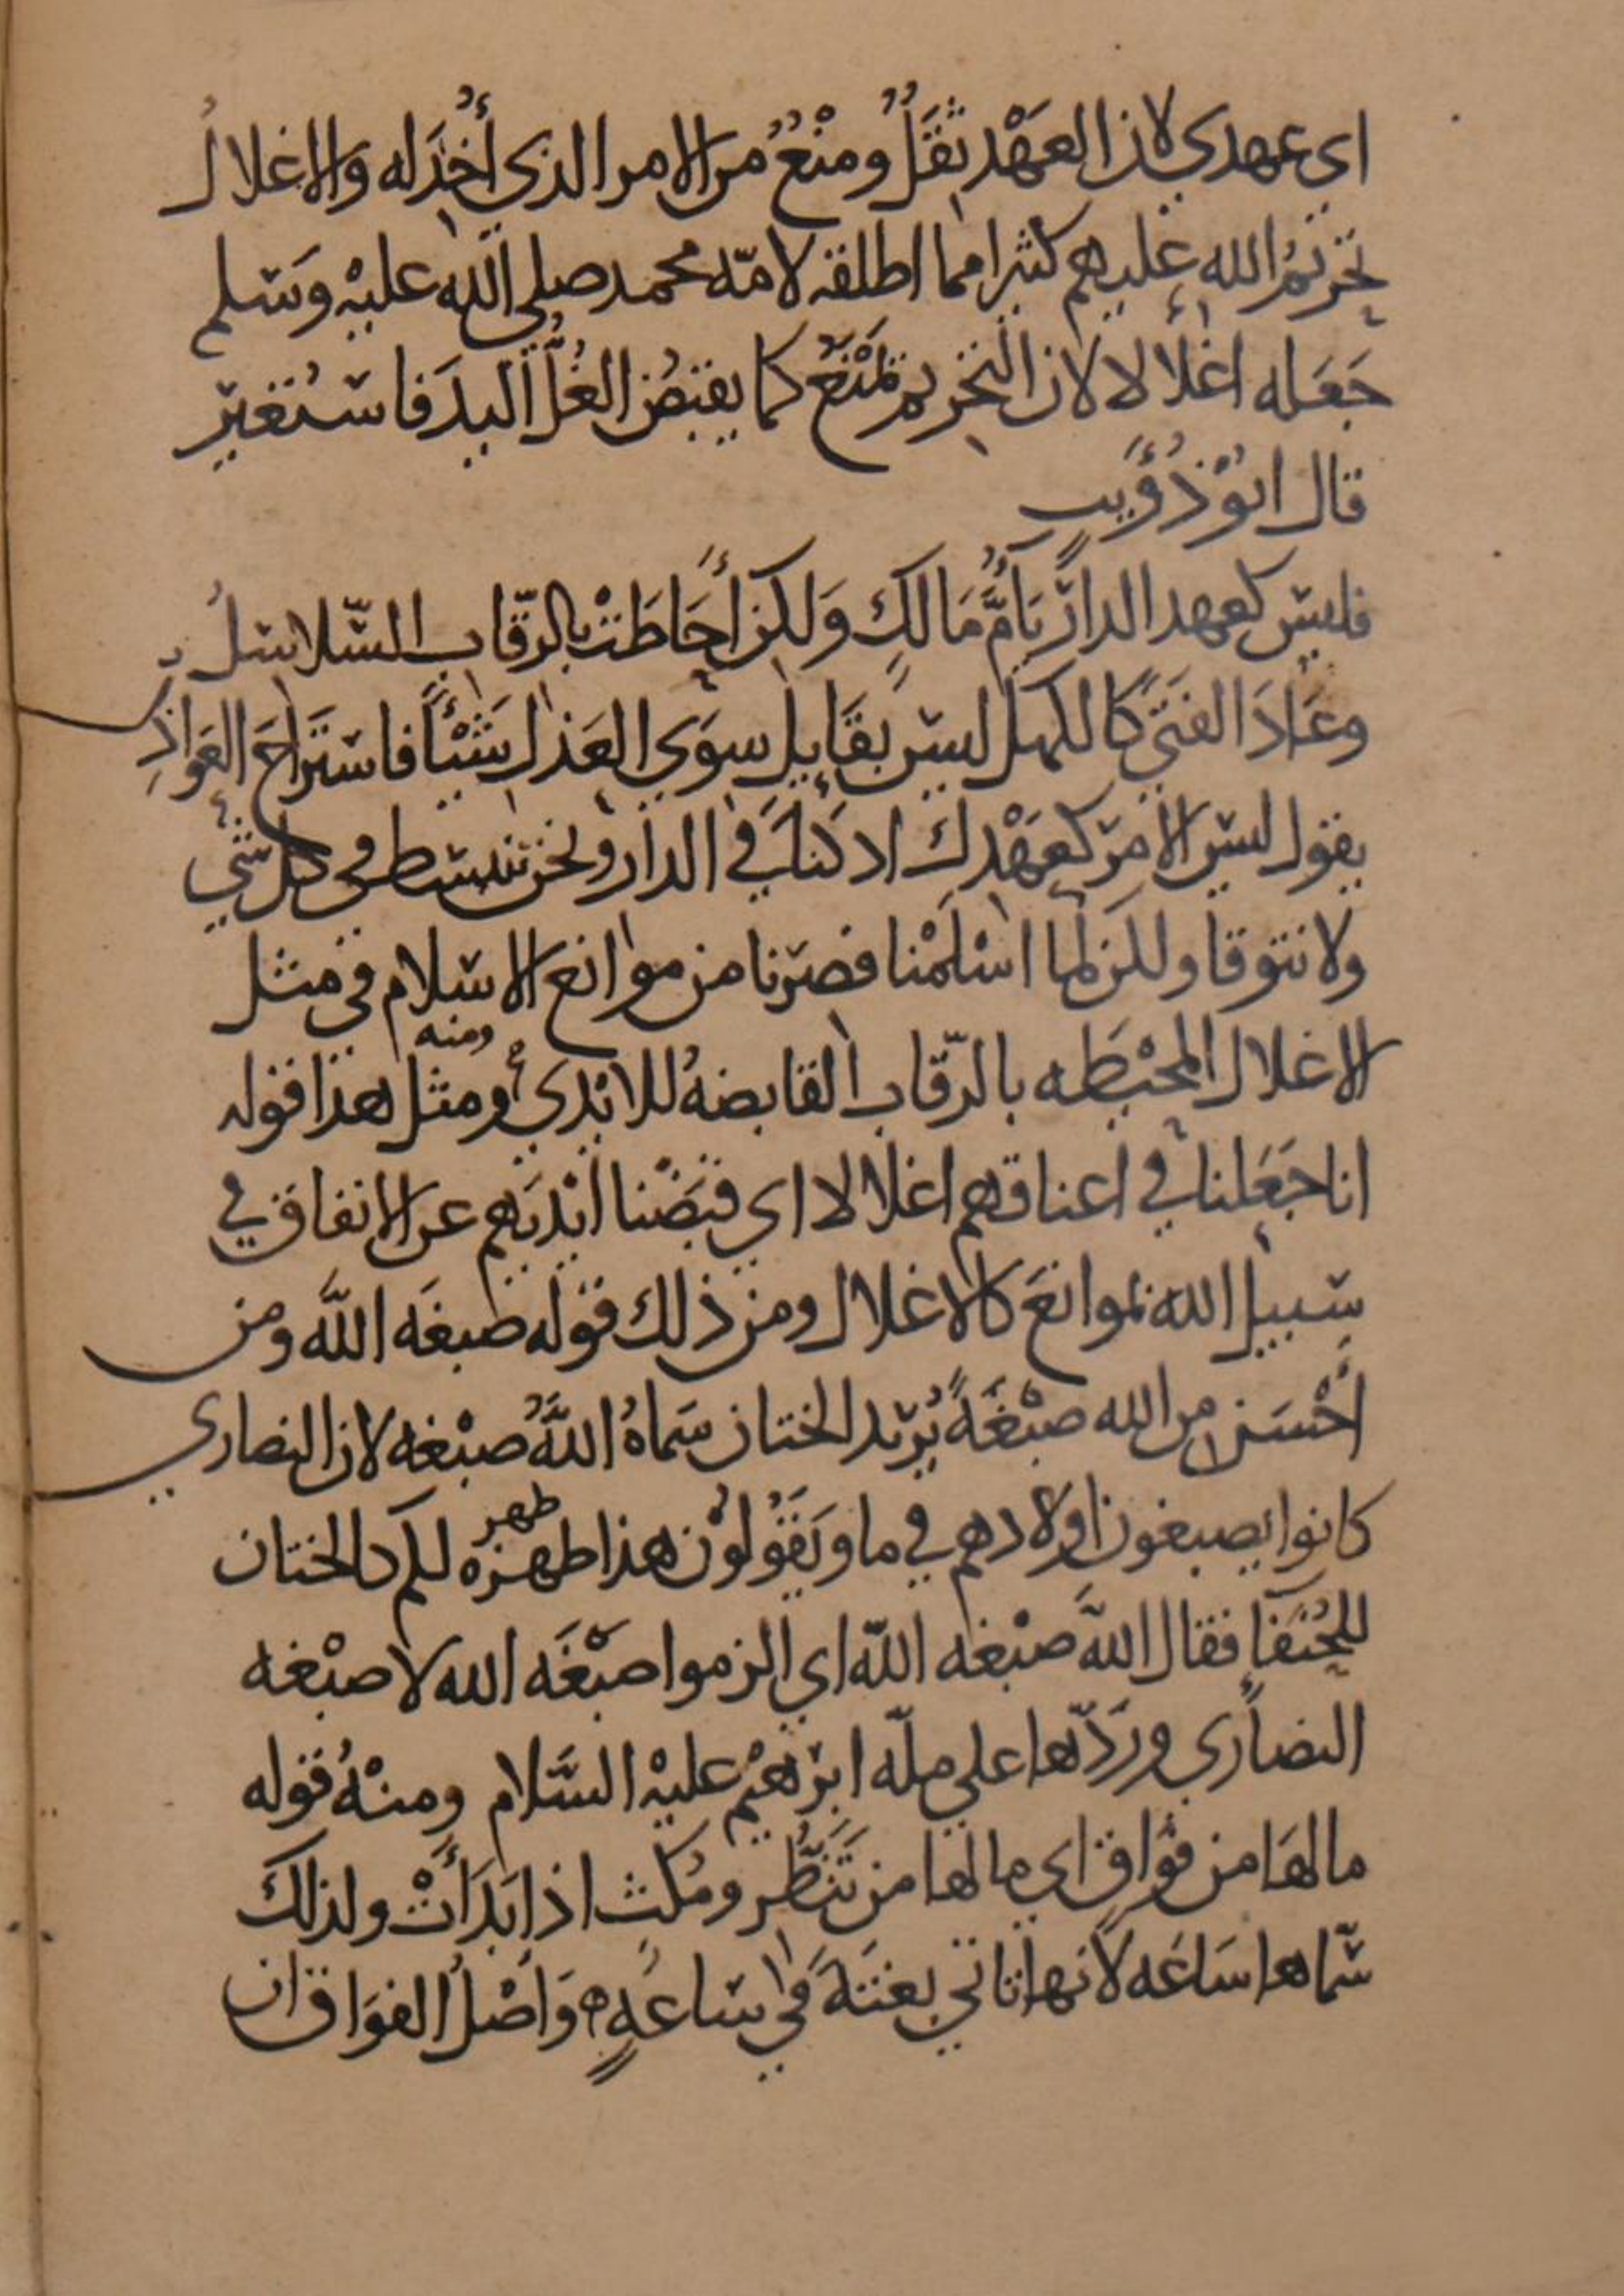 اي عهدي لان العَهْد ثقَلٌ ومنْعٌ من الامر الذي أُخِذَ له والاغلالُ
تحريمُ الله عليهم كثيرا مما اطلقه لامّة محمد صلي الله عليْه وَسَلم
جَعَله اغلالا لان التحريم يَمْنَعُ كما يقبضُ الغُلُّ اليدَ فاسْتُعِيرَ
قال ابُوْ ذُؤَيب
فليسَ كعهد الدار يَا أُمَّ مَالكٍ وَلكن أَحَاطَتْ بالرّقاب السّلاسلُ
وعَادَ الفتَى كالكهل ليسَ بقَايلٍ سوَى العَذل شَيْئًا فاستَراحَ العَواذِل
يقول ليس الامرَ كعَهْدك اذ كنا في الدار ونحن نتبسّط في كل شي
ولا نتوقا ولكن لما اسْلَمْنا فصرْنا من موانع الاسلام في مثل
الاغلال المحيْطه بالرّقاب القابضهُ للايْدي ومنه ومثل هذا قوله
انا جَعَلنا في اعناقهم اغلالا اي قبَضْنا ايْديَهم عن الانفاق في
سَبيل الله بموانعَ كالاغلال ومن ذلك قوله صبغَه اللَّه ومن
أَحْسَن من الله صبْغَةً يُريد الختان سَماهُ اللَّهُ صبْغه لان النصاري
كانوا يصبغون اولادهم في ما ويَقُولوْن هذا طهره طهر لكم كالختان
للحُنَفآ فقال اللَّه صبْغه اللّه اي الزموا صبْغَه الله لا صبْغه
النصاري ورَدّها علي ملّه ابرْهيْم عليْه السَّلام ومنْهُ قوله
ما لهَا من فوَاق اي ما لها من تَنَظُّر ومُكثٍ اذا بَدَأَتْ ولذلكَ
سَّماها سَاعَه لانها تاتي بغتَةً في ساعَةٍ وَاصْلُ الفوَاق ان